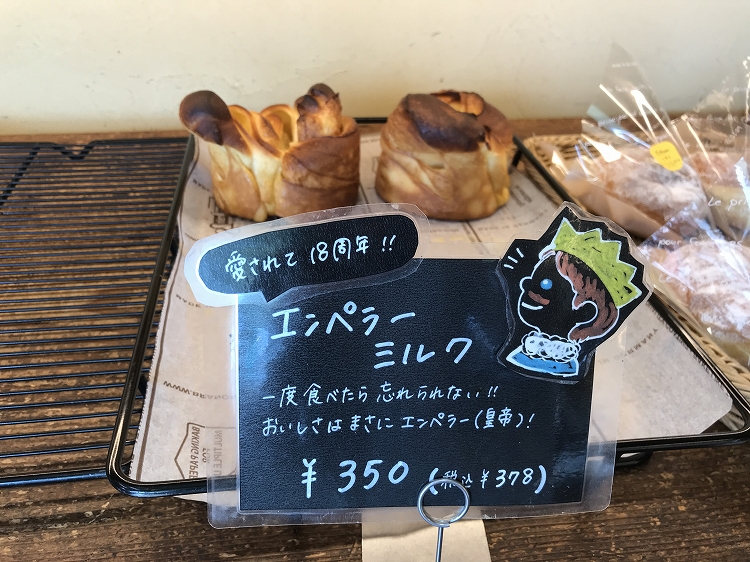 愛されて 18周年!!
エンペラー
ミルク
一度食べたら 忘れられない!!
おいしさは まさに エンペラー(皇帝)!
¥350 (税込 ¥378)